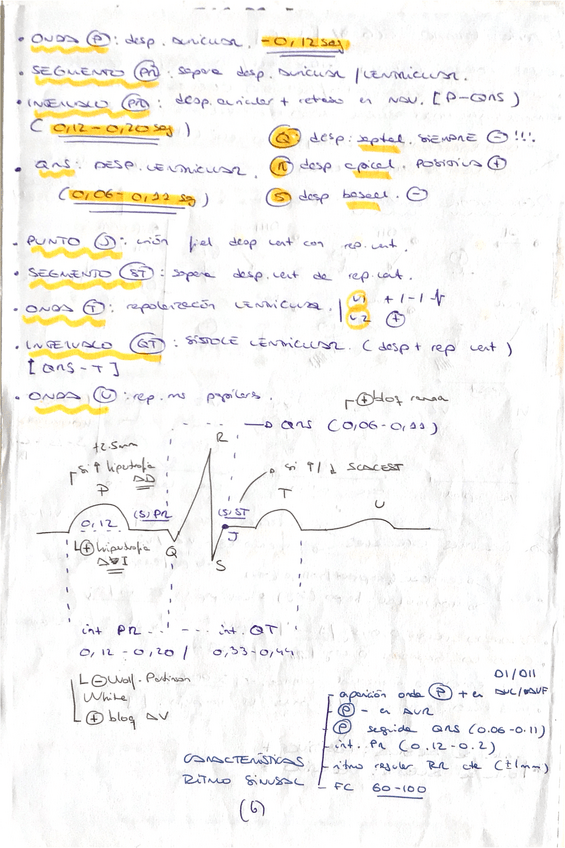 • ONDA (P): desp. auricular. -0,12 seg
• SEGMENTO (PR): separa desp. auricular / VENTRICULAR.
• INTERVALO (PR): desp. auricular + retraso en NAV. [P-QRS]
(0,12-0,20 seg)
(Q) desp. septal. SIEMPRE ⊖!!!
• QRS: DESP. VENTRICULAR.
(R) desp apical. POSITIVA ⊕
(0,06-0,11 sg)
(S) desp basal. ⊖
• PUNTO (J): unión final desp vent con rep. vent.
• SEGMENTO (ST): separa desp. vent de rep. vent.
• ONDA (T): repolarización VENTRICULAR.
V1 + / -
V2 ⊕
• INTERVALO (QT): SÍSTOLE VENTRICULAR. (desp + rep vent)
[QRS-T]
• ONDA (U): rep. ms papilares.
⊕ bloq rama
QRS (0,06-0,11)
R
+2.5mm
si ↑ hipertrofia
AD
si ↑/↓ SCACEST
P
(S) PR
(S) ST
T
U
0,12
J
⊕ hipertrofia
AI
Q
S
int PR
int. QT
0,12-0,20 /
0,33-0,44
⊖ Wolf-Parkinson
White
⊕ bloq AV
DI/DII
aparición onda (P) + en AVL/AVF
(P) - en AVR
(P) seguida QRS (0.06-0.11)
int. PR (0.12-0.2)
CARACTERÍSTICAS
ritmo regular RR cte (±1mm)
RITMO SINUSAL
FC 60-100
(6)